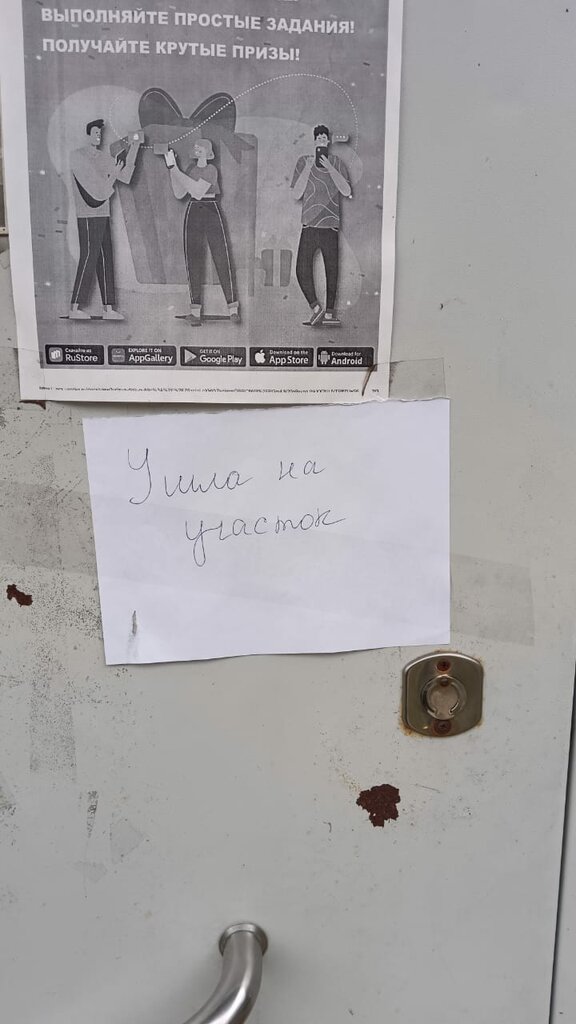 ВЫПОЛНЯЙТЕ ПРОСТЫЕ ЗАДАНИЯ!
ПОЛУЧАЙТЕ КРУТЫЕ ПРИЗЫ!
Скачайте из RuStore
EXPLORE IT ON AppGallery
GET IT ON Google Play
Download on the App Store
Download for Android
Ушла на
участок